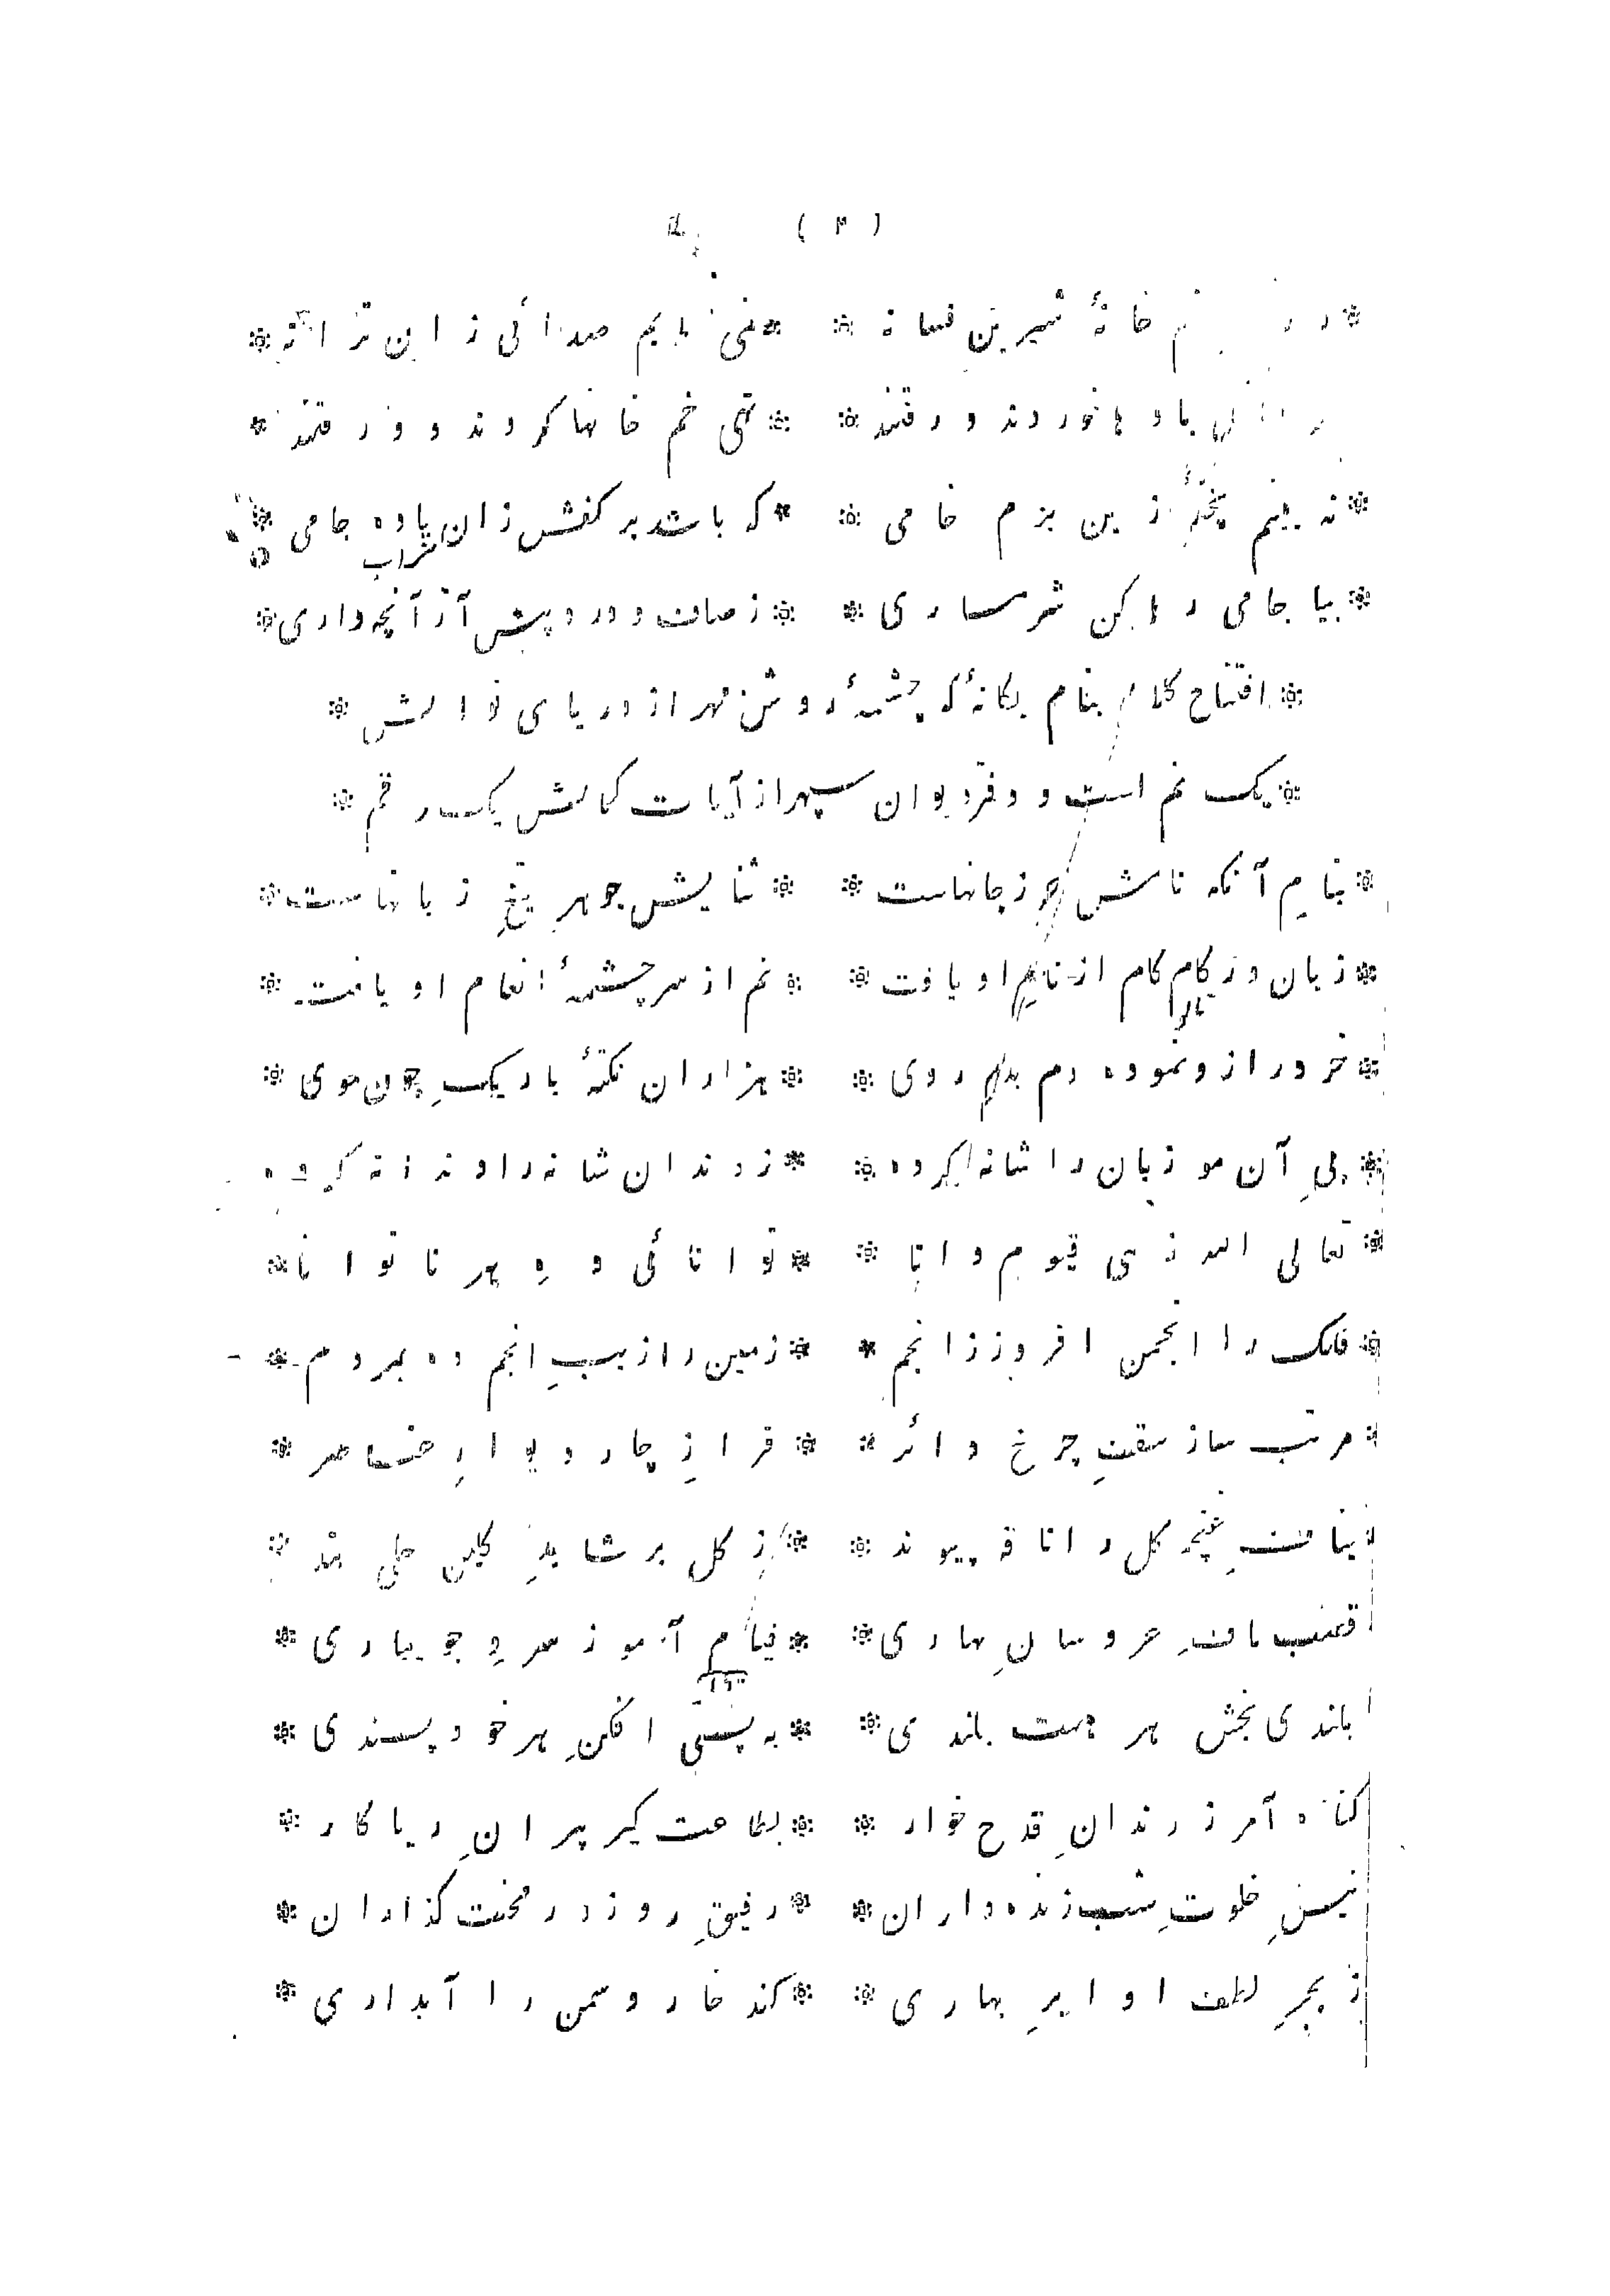 ( ۳ )
در * خم خانهٔ شیرین فسانه * * نمی یابم صدائی ز این ترانه *
بادها خوردند و رفتند * * تهی خم خانها کردند و رفتند *
* نه بینم پختهٔ زین بزم خامی * * که باشد بر کفش زان باده جامی *
شراب
* بیا جامی رها کن شرمساری * * ز صاف و درد پیش آر آنچه داری *
* افتتاح کلام بنام یگانهٔ که چشمهٔ روشن مهر از دریای نوالش *
* یک نم است و دفتر دیوان سپهر از آیات کمالش یک رقم *
* بنام آنکه نامش حرز جانهاست * * ثنایش جوهر تیغِ زبانهاست *
* زبان در کام کام از نام او یافت * * نم از سرچشمهٔ انعام او یافت *
* خرد را زو نموده دم بدم روی * * هزاران نکتهٔ باریکِ چون موی *
* پیِ آن مو زبان را شانه کرده * * ز دندان شانه را دندانه کرده
* تعالی الله زهی قیوم دانا * * توانائی ده هر ناتوانا *
* فلک را انجمن افروز ز انجم * * زمین را زیبِ انجم ده بمردم *
* مرتب ساز سقفِ چرخ دائر * * فرازِ چار دیوارِ عناصر *
* بنافِ غنچه گل را نافه پیوند * * ز گل بر شاهدِ گلبن حلی بند *
قصب بافِ عروسانِ بهاری * * قیام آموز سروِ جویباری *
بلندی بخش هر همت بلندی * * به پستی افکنِ هر خود پسندی *
گناه آمرز رندانِ قدح خوار * * بطاعت گیر پیرانِ ریاکار *
انیسِ خلوتِ شب زنده داران * * رفیقِ روز در محنت گذاران *
ز بحرِ لطف او ابرِ بهاری * * کند خار و سمن را آبداری *